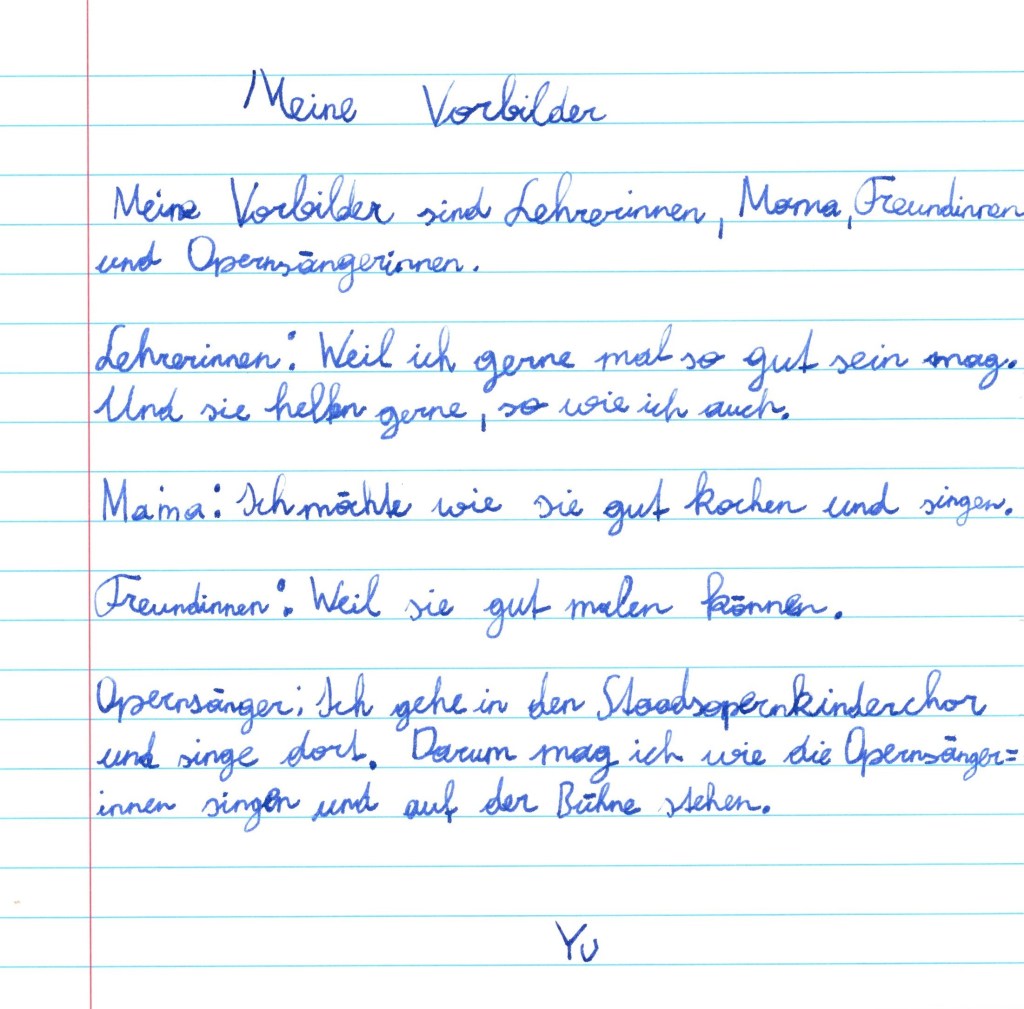 Meine Vorbilder
Meine Vorbilder sind Lehrerinnen, Mama, Freundinnen
und Opernsängerinnen.
Lehrerinnen: Weil ich gerne mal so gut sein mag.
Und sie helfen gerne, so wie ich auch.
Mama: Ich möchte wie sie gut kochen und singen.
Freundinnen: Weil sie gut malen können.
Opernsänger: Ich gehe in den Staadsopernkinderchor
und singe dort. Darum mag ich wie die Opernsänger=
innen singen und auf der Bühne stehen.
Yu